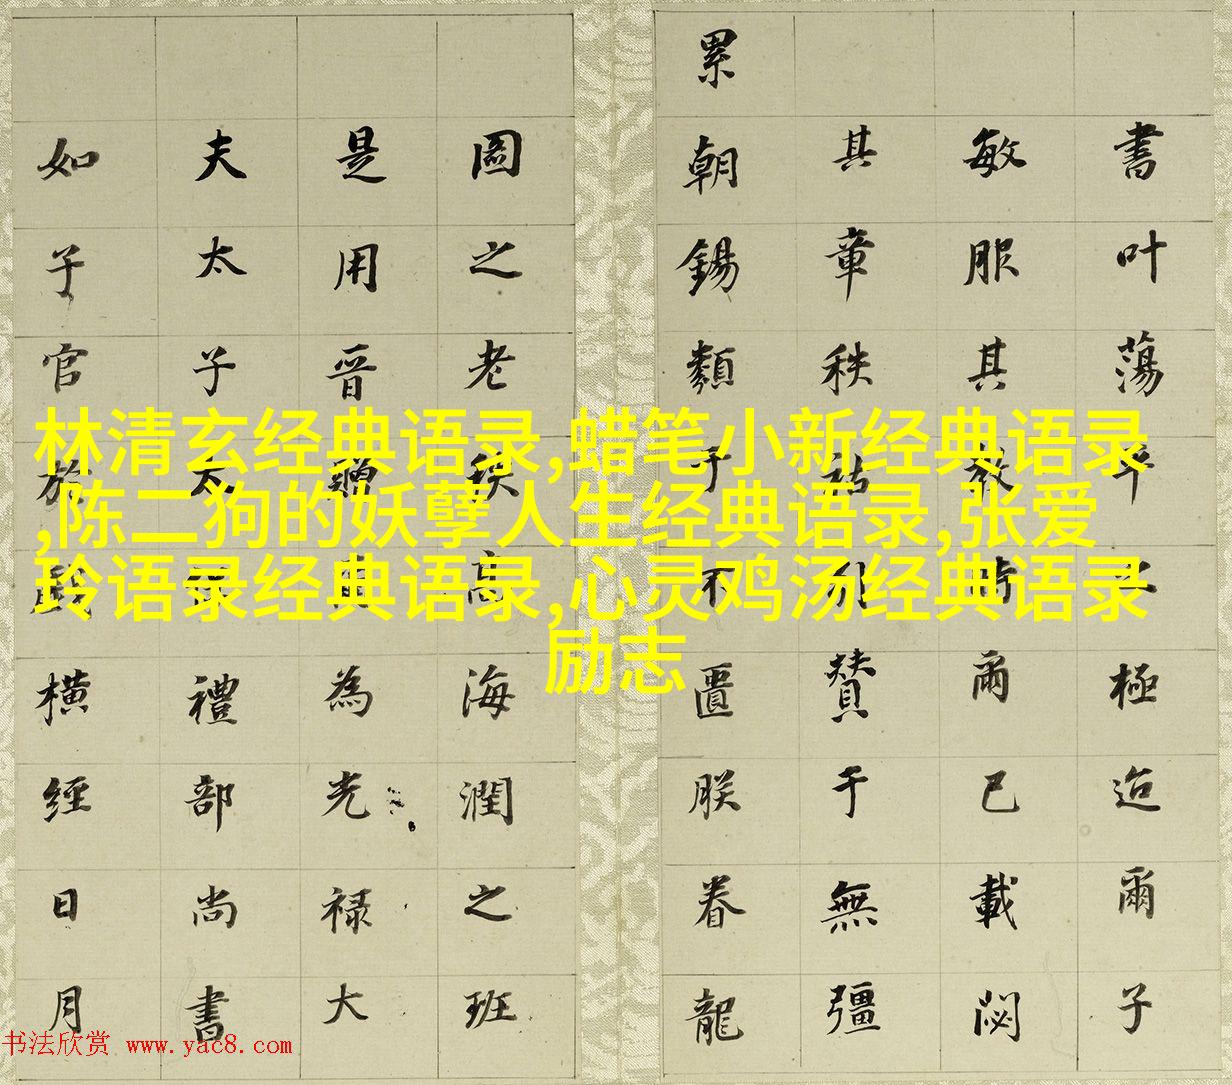 林清玄经典语录,蜡笔小新经典语录
,陈二狗的妖孽人生经典语录,张爱
玲语录经典语录,心灵鸡汤经典语录
励志
書叶蕩平極迨爾子
敏服其教時爾已載閟
其章秩祜贊于無彊
累朝錫類于不匱朕眷龍
圖之老秩高海潤之班
是用晉贈為光禄大
夫太子太禮部尚書
如子官橫經日月
书法欣赏 www.yac8.com